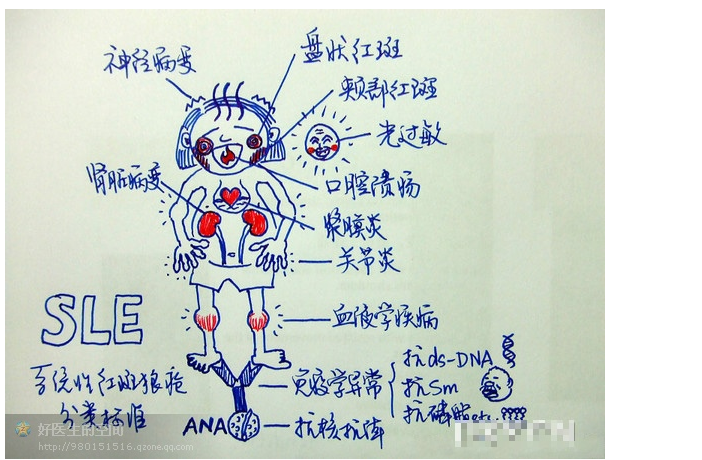 神经病变
盘状红斑
颊部红斑
光过敏
肾脏病变
口腔溃疡
浆膜炎
关节炎
SLE
血液学疾病
系统性红斑狼疮
分类标准
免疫学异常
抗ds-DNA
抗Sm
抗磷脂etc.????
ANA
抗核抗体
好医生的空间
http://980151516.qzone.qq.com